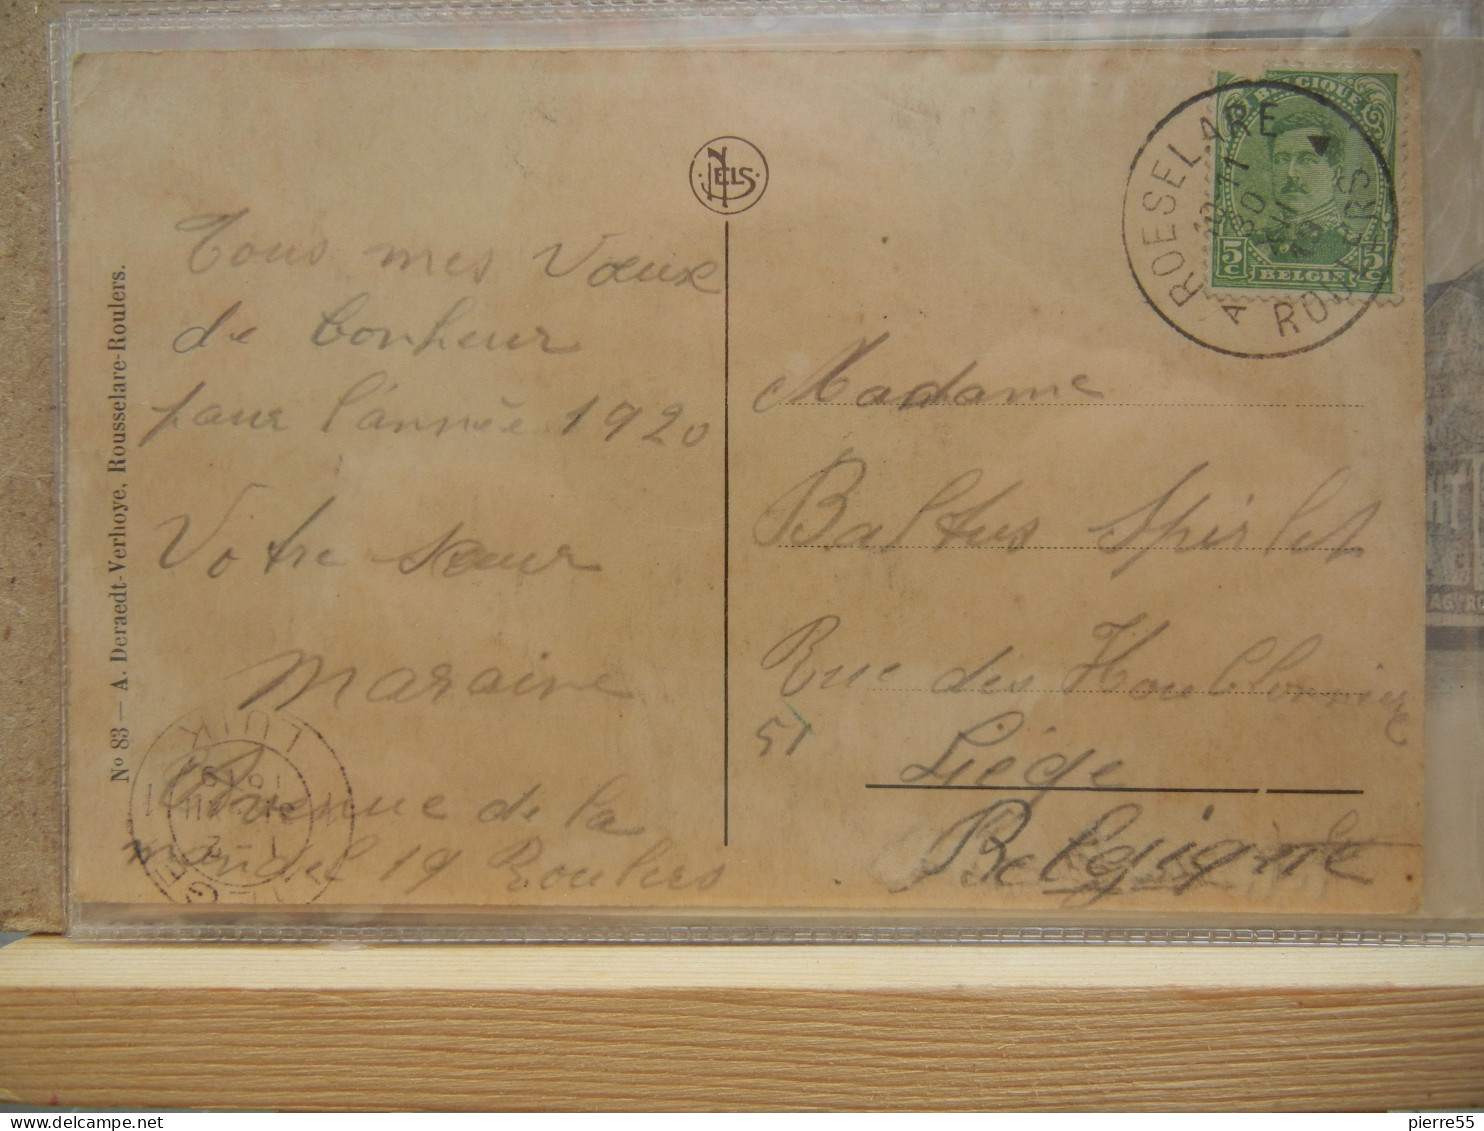 Nº 83 — A. Deraedt-Verhoye, Rousselare-Roulers.
NELS
Tous mes Vœux
de bonheur
pour l'année 1920
Votre sœur
Maraine
Avenue de la
mandel 19 Roulers
BELGIQUE
5c 5c
BELGIE
ROESELARE
10-11
30
XII
19
A ROULERS
Madame
Baltus Spirlet
Rue des Houblonnière
51
Liége
Belgique
LUIK
1919
pierre55